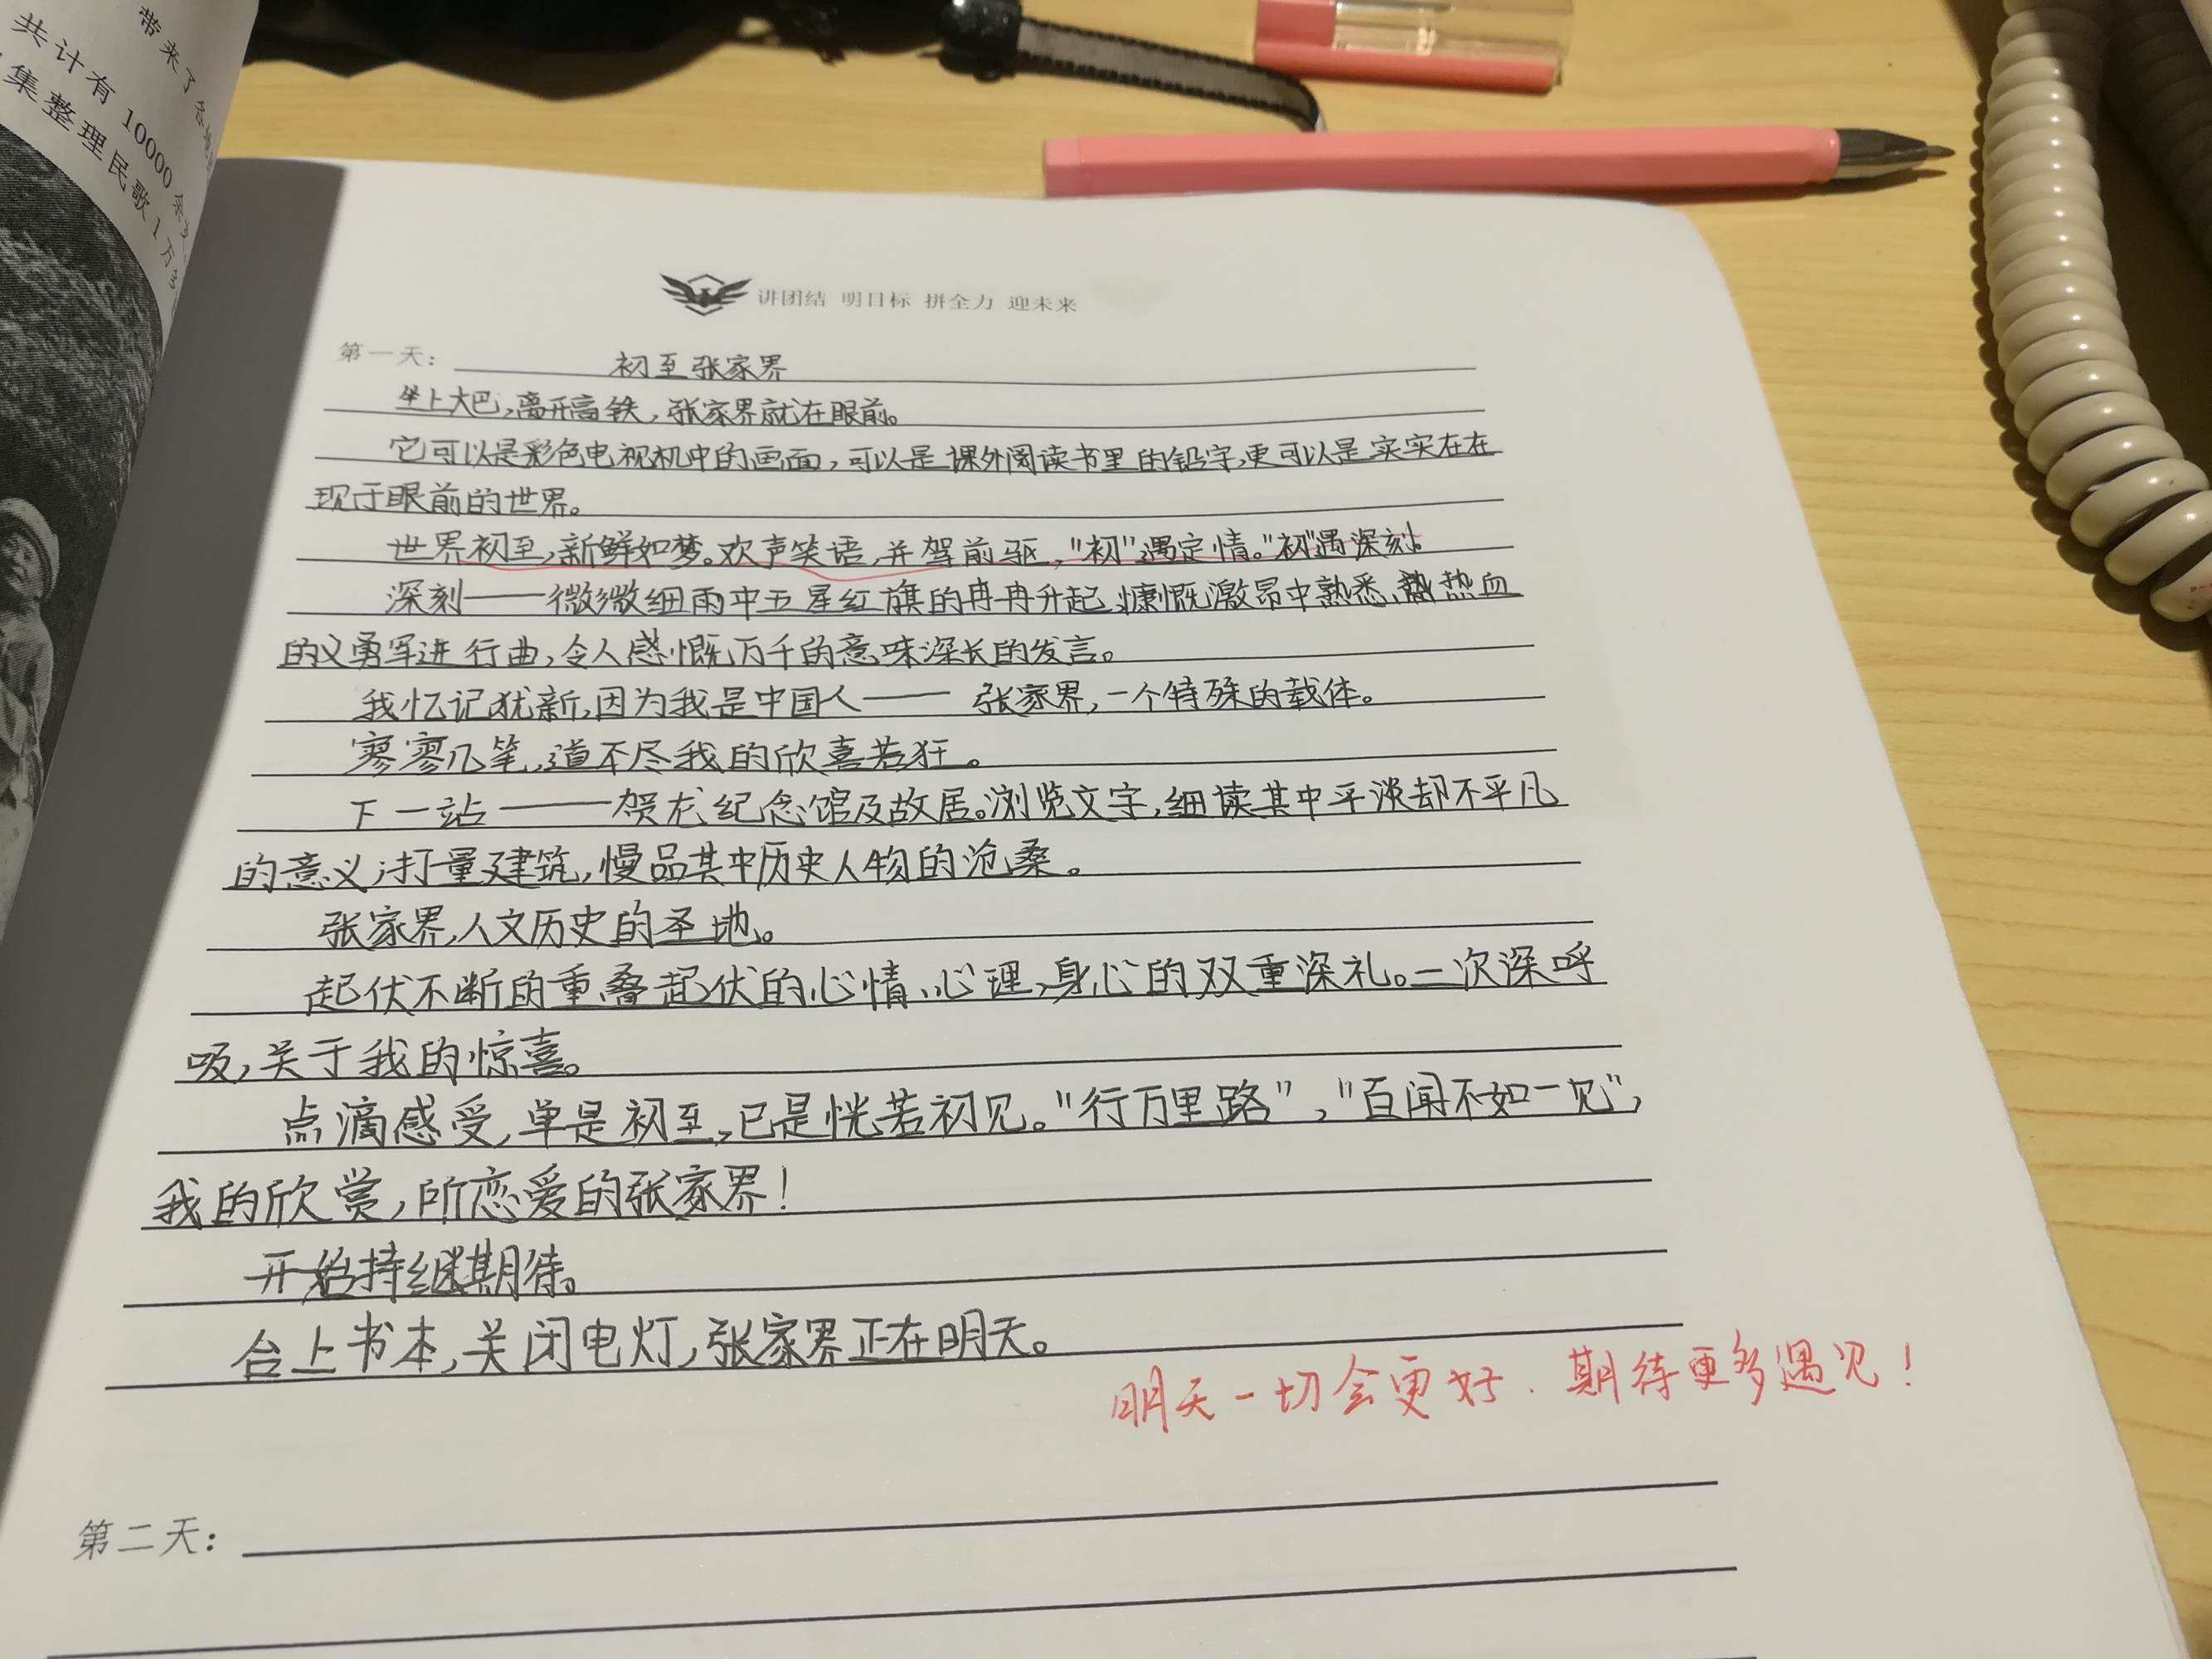 带来了
共计有 10000
集整理民歌1万
讲团结 明目标 拼全力 迎未来
第一天： 初至张家界
坐上大巴，离开高铁，张家界就在眼前。
它可以是彩色电视机中的画面，可以是课外阅读书里的铅字，更可以是实实在在
现于眼前的世界。
世界初至，新鲜如梦。欢声笑语，并驾前驱，"初"遇定情。"初"遇深刻。
深刻——微微细雨中五星红旗的冉冉升起，慷慨激昂中熟悉、热血
的义勇军进行曲，令人感慨万千的意味深长的发言。
我忆记犹新，因为我是中国人—— 张家界，一个特殊的载体。
寥寥几笔，道不尽我的欣喜若狂。
下一站——贺龙纪念馆及故居。浏览文字，细读其中平淡却不平凡
的意义；打量建筑，慢品其中历史人物的沧桑。
张家界，人文历史的圣地。
起伏不断的重叠起伏的心情、心理，身心的双重深礼。二次深呼
吸，关于我的惊喜。
点滴感受，单是初至，已是恍若初见。"行万里路"，"百闻不如一见"，
我的欣赏，所恋爱的张家界！
开始持继期待。
合上书本，关闭电灯，张家界正在明天。
明天一切会更好．期待更多遇见！
第二天：